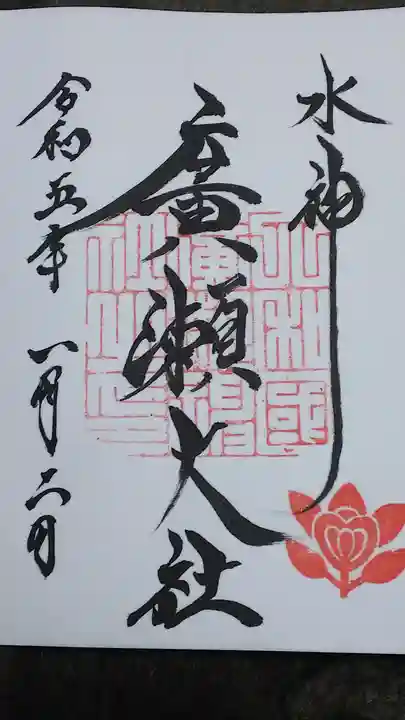 水神
廣瀬大社
令和五年 八月六日